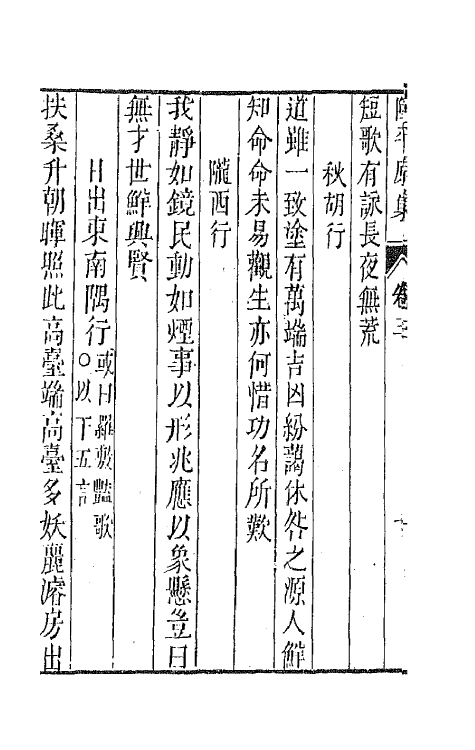 陸平原集 卷三
短歌有詠長夜無荒
秋胡行
道雖一致塗有萬端吉凶紛藹休咎之源人鮮
知命命未易觀生亦何惜功名所歎
隴西行
我靜如鏡民動如煙事以形兆應以象懸豈曰
無才世鮮興賢
日出東南隅行或曰羅敷豔歌○以下五言
扶桑升朝暉照此高臺端高臺多妖麗濬房出